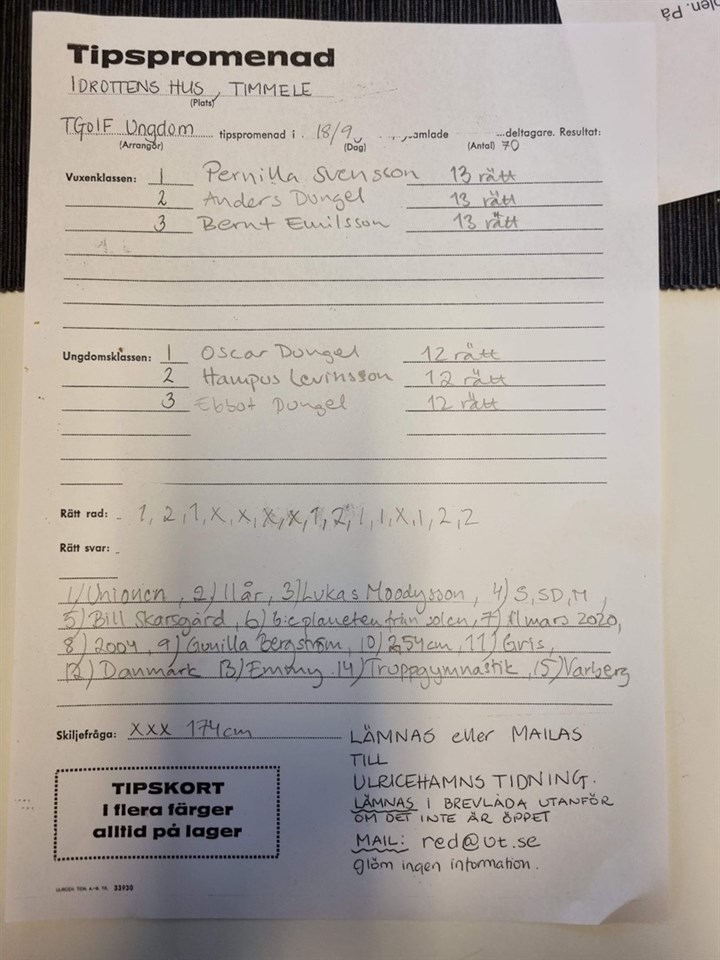 olen. På
Tipspromenad
IDROTTENS HUS, TIMMELE
(Plats)
TGoIF Ungdom tipspromenad i 18/9 samlade deltagare. Resultat:
(Arrangör) (Dag) (Antal) 70
Vuxenklassen: 1 Pernilla Svensson 13 rätt
2 Anders Dungel 13 rätt
3 Bernt Emilsson 13 rätt
Ungdomsklassen: 1 Oscar Dungel 12 rätt
2 Hampus Levinsson 12 rätt
3 Ebbot Dungel 12 rätt
Rätt rad: 1, 2, 1, X, X, X, X, 1, 2, 1, 1, X, 1, 2, 2
Rätt svar:
1) Unionen, 2) 11 år, 3) Lukas Moodysson, 4) S, SD, M,
5) Bill Skarsgård, 6) 6:e planeten från solen, 7) 11 mars 2020,
8) 2004, 9) Gunilla Bergström, 10) 2,54cm, 11) Gris,
12) Danmark 13) Emmy 14) Truppgymnastik, 15) Varberg
Skiljefråga: XXX 174cm
LÄMNAS eller MAILAS
TILL
ULRICEHAMNS TIDNING.
LÄMNAS I BREVLÅDA UTANFÖR
OM DET INTE ÄR ÖPPET
MAIL: red@ut.se
glöm ingen information.
TIPSKORT
i flera färger
alltid på lager
ULRICEH. TIDN. A.-B. TR. 33930